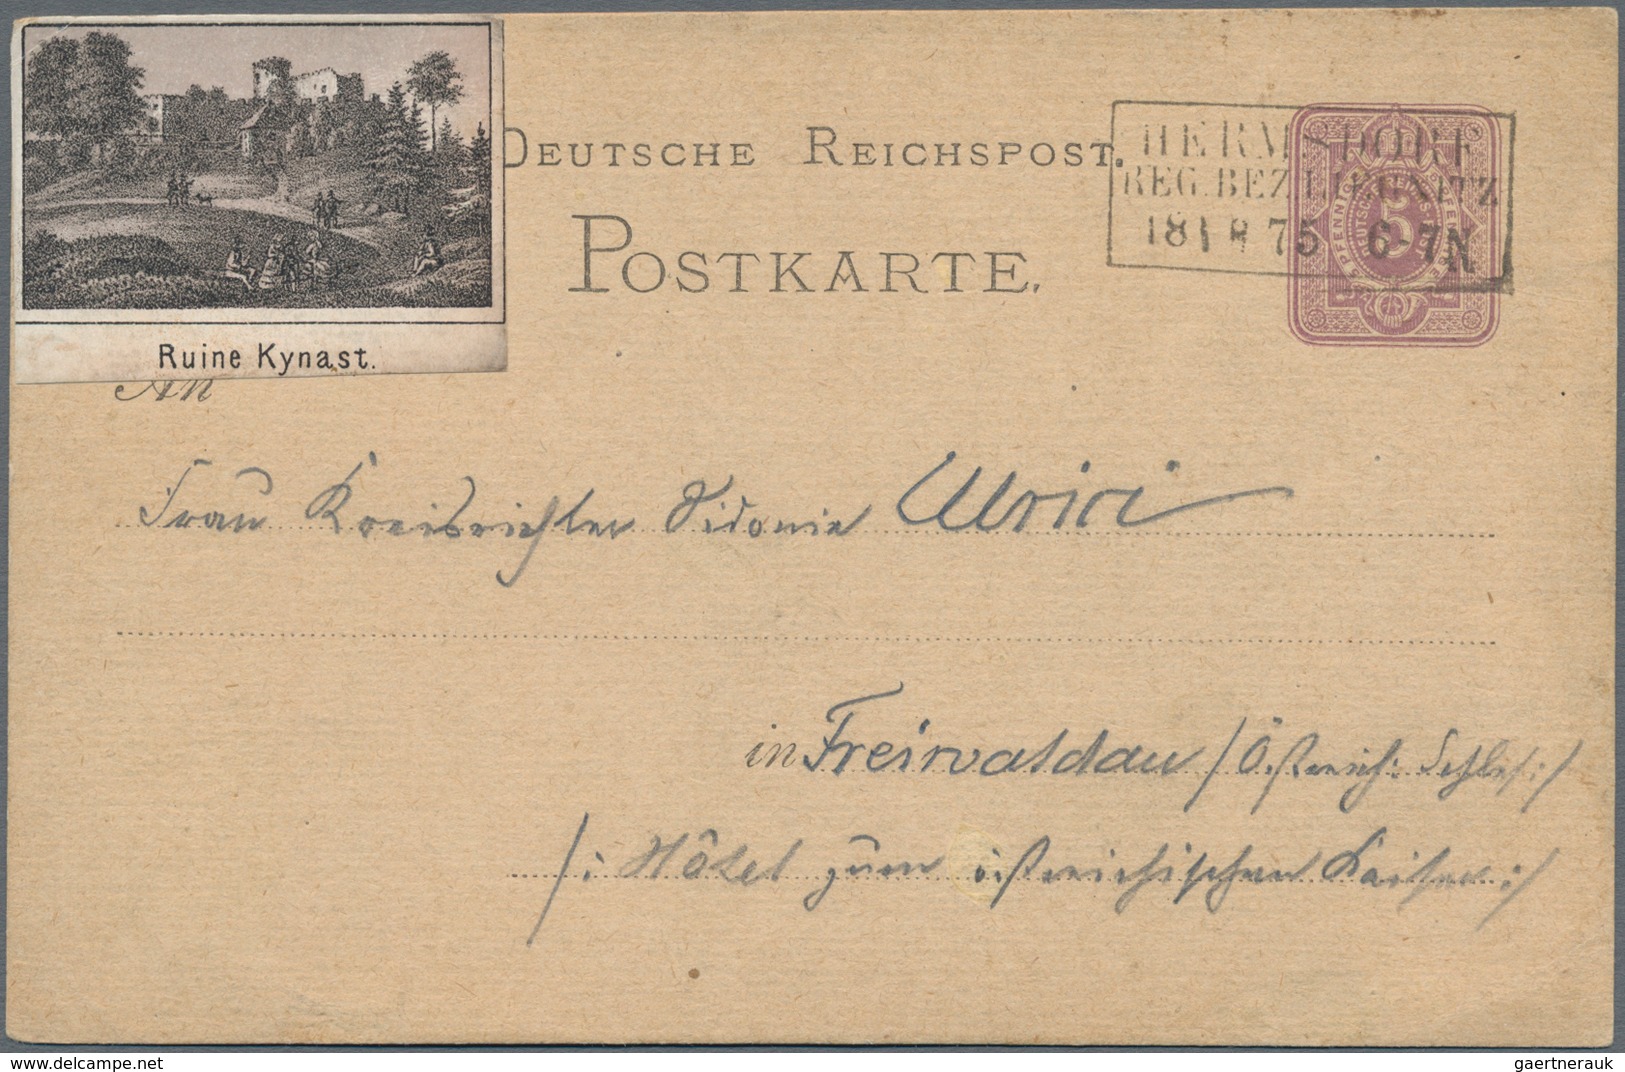 Ruine Kynast.
DEUTSCHE REICHSPOST.
POSTKARTE.
HERMSDORF
REG.BEZ.LIEGNITZ
18 8 75 6-7N
5
An
Frau Kreisrichter Sidonie Ulrici
in Freiwaldau /Östreich: Schles:/
/: Hôtel zum östreichischen Kaiser :/
www.delcampe.net
gaertnerauk